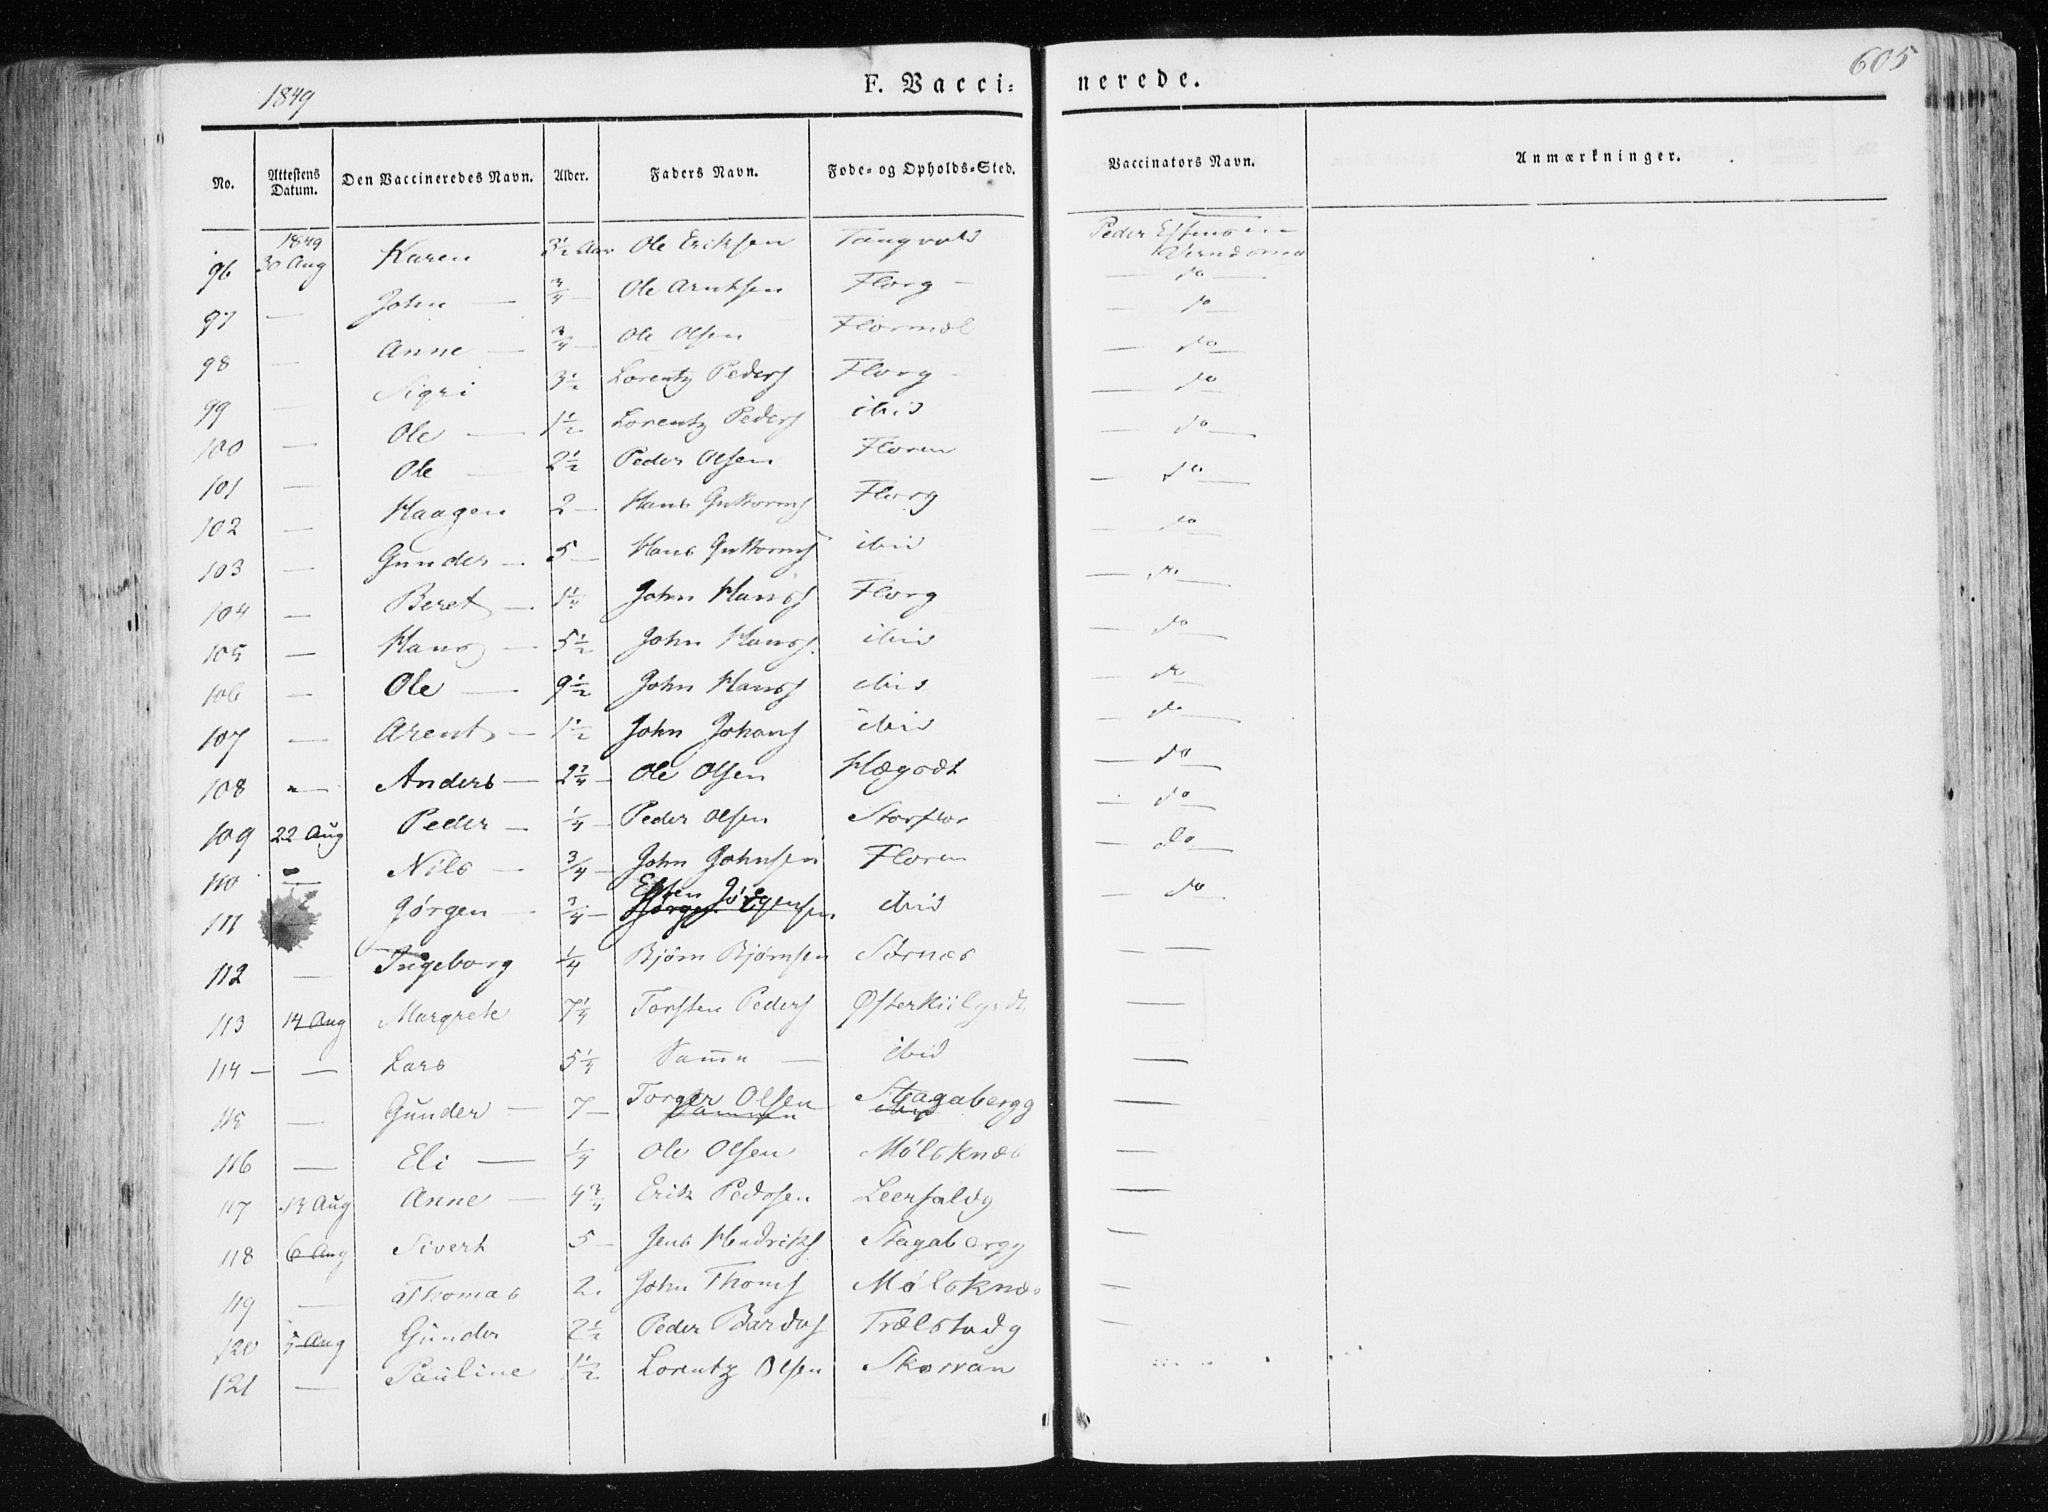 1849 F. Vacci: nerede. 605
No. Attestens Datum. Den Vaccineredes Navn. Alder. Faders Navn. Føde- og Opholds-Sted. Vaccinators Navn. Anmærkninger.
96 1849 30 Aug Karen 3½ Aar Ole Eriksen Tangvold Peder Estensen
97 — John — ¾ — Ole Arntsen Florg — — do —
98 — Anne — ¾ — Ole Olsen Flormoe — do —
99 — Sigri 3½ Lorentz Peders Florg — — do —
100 — Ole — 1½ Lorentz Peders ibid — do —
101 — Ole — 2½ Peder Olsen Floren — do —
102 — Haagen 2 — Hans Guttorms Florg — do —
103 — Gunder — 5 — Hans Guttorms ibid — do —
104 — Beret — 1¼ John Hans Florg — do —
105 — Hans — 5½ John Hans. ibid — do —
106 — Ole — 9½ John Hans ibid — do —
107 — Arent — 1½ John Johans ibid — do —
108 — Anders — 2¾ — Ole Olsen Hægodt — do —
109 22 Aug Peder — ¼ — Peder Olsen Storflor — do —
110 — Nils — ¾ — John Johnsen Floren — do —
111 Jørgen — ¾ — Esten Jørgensen ibid — do —
112 — Ingeborg ¼ Bjørn Bjørnsen Sørnes — —
113 14 Aug Margrete 7¼ Torsten Peders Østerkiilgrdt —
114 — — Lars 5¼ Samme — ibid —
115 — Gunder — 7 — Torger Olsen Samme Stagabergg ibid —
116 — Eli — ¼ Ole Olsen Mølsknes —
117 13 Aug Anne — 4¾ Erik Pedersen Leerfaldg —
118 6 Aug Sivert 5 — Jens Hendriks Stagabergg —
119 — Thomas 2. John Thoms Mølsknes —
120 5 Aug Gunder 2½ Peder Bardos Trælstadg —
121 — Pauline 1½ Lorentz Olsen Skorvan